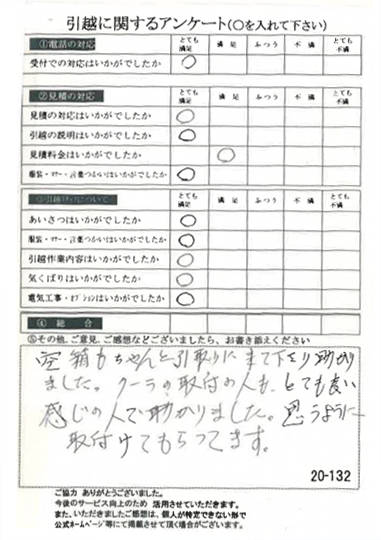 引越に関するアンケート(○を入れて下さい)
①電話の対応 とても満足 満足 ふつう 不満 とても不満
受付での対応はいかがでしたか ○
②見積の対応 とても満足 満足 ふつう 不満 とても不満
見積の対応はいかがでしたか ○
引越の説明はいかがでしたか ○
見積料金はいかがでしたか ○
服装・マナー・言葉づかいはいかがでしたか ○
とても満足 満足 ふつう 不満 とても不満
あいさつはいかがでしたか ○
服装・マナー・言葉づかいはいかがでしたか ○
引越作業内容はいかがでしたか ○
気くばりはいかがでしたか ○
電気工事・オプションはいかがでしたか ○
④総合
⑤その他、ご意見、ご感想などございましたら、お書き添えください
空箱もちゃんと引取りに来て下さり助かり
ました。クーラの取付の人も、とても良い
感じの人で助かりました。思うように
取付けてもらってます。
20-132
ご協力 ありがとうございました。
今後のサービス向上のため 活用させていただきます。
また、いただきましたご感想は、個人が特定できない形で
公式ホームページ等にて掲載させて頂く場合がございます。